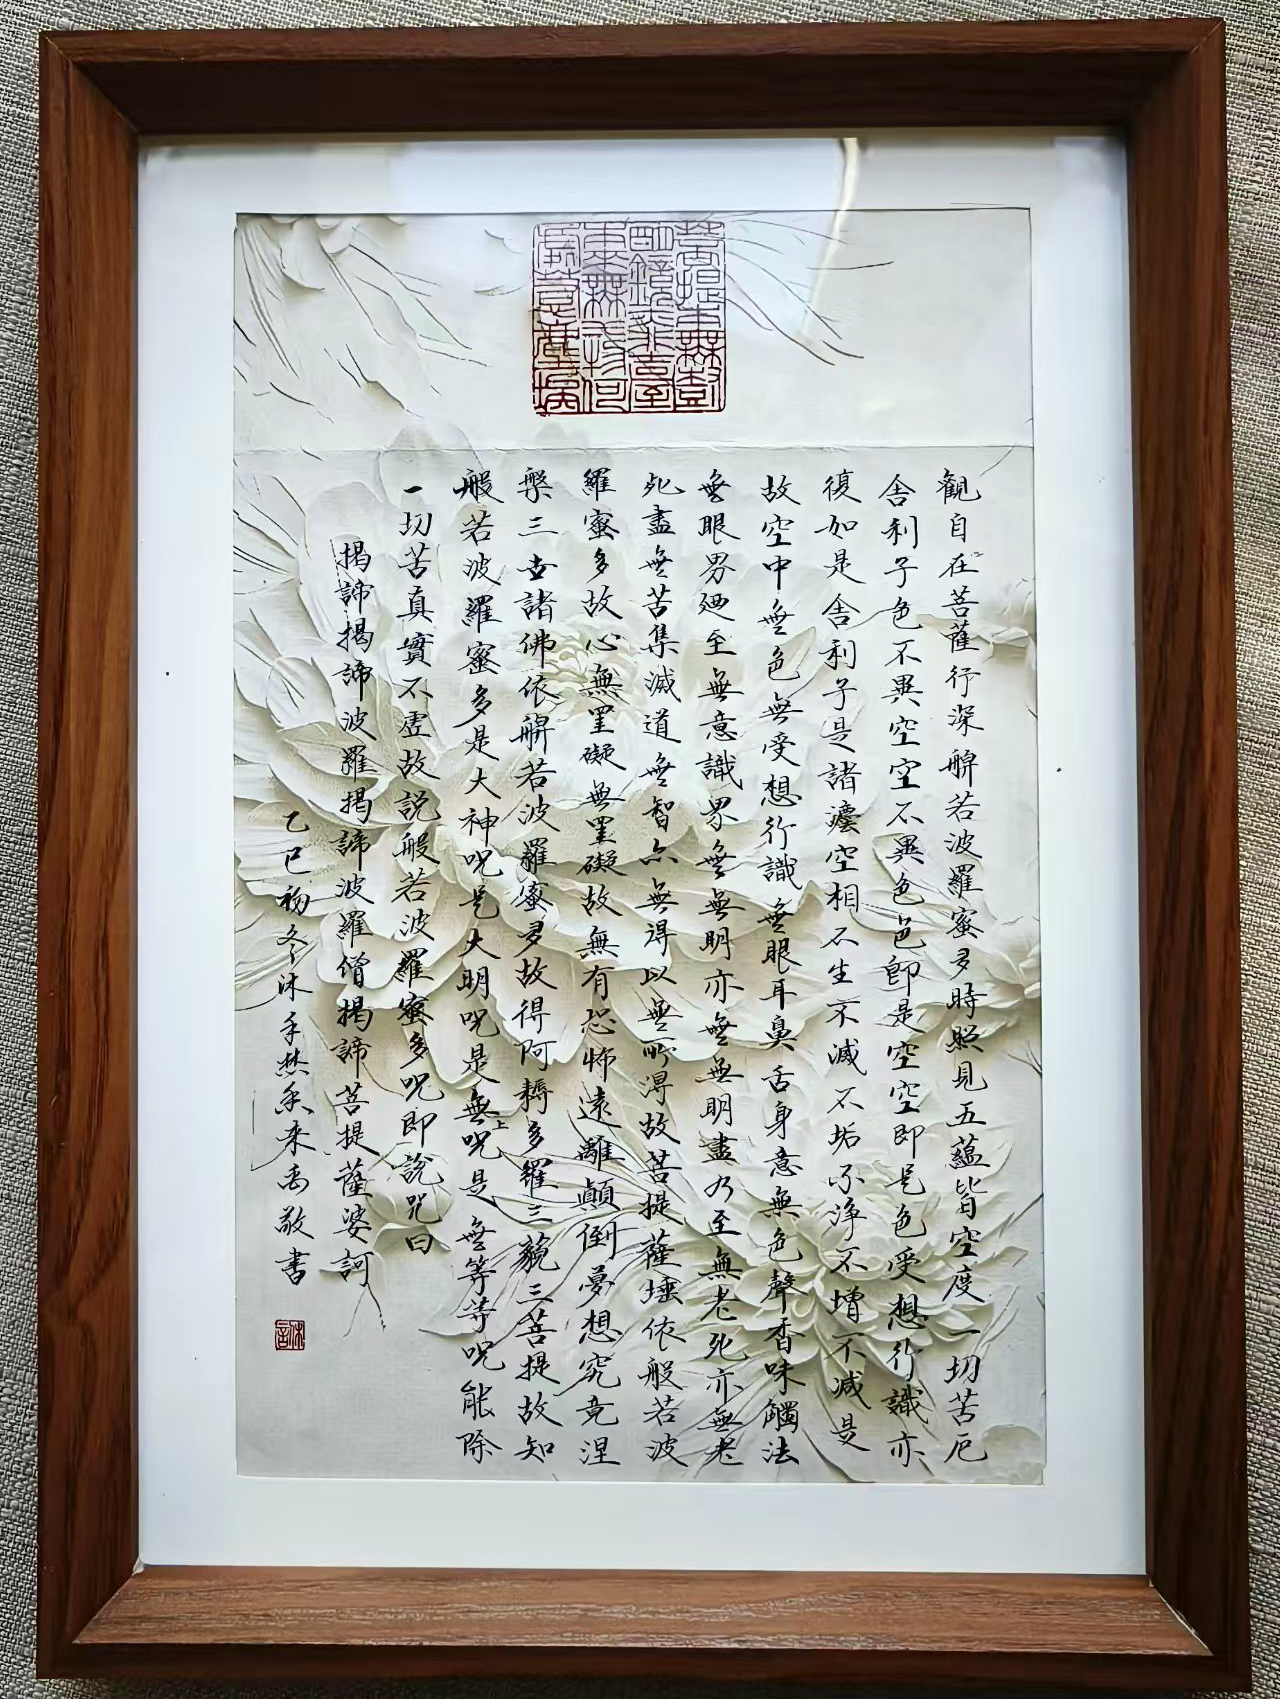 菩提本無樹
明鏡亦非臺
本來無一物何
處惹塵埃
觀自在菩薩行深般若波羅蜜多時照見五蘊皆空度一切苦厄
舍利子色不異空空不異色色即是空空即是色受想行識亦
復如是舍利子是諸灋空相不生不滅不垢不淨不增不減是
故空中無色無受想行識無眼耳鼻舌身意無色聲香味觸法
無眼界廼至無意識界無無明亦無無明盡乃至無老死亦無老
死盡無苦集滅道無智亦無得以無所得故菩提薩埵依般若波
羅蜜多故心無罣礙無罣礙故無有恐怖遠離顛倒夢想究竟涅
槃三世諸佛依般若波羅蜜多故得阿耨多羅三藐三菩提故知
般若波羅蜜多是大神呪是大明呪是無上呪是無等等呪能除
一切苦真實不虛故説般若波羅蜜多呪即說咒曰
揭諦揭諦波羅揭諦波羅僧揭諦菩提薩婆訶
乙巳初冬沐手焚香來禹敬書